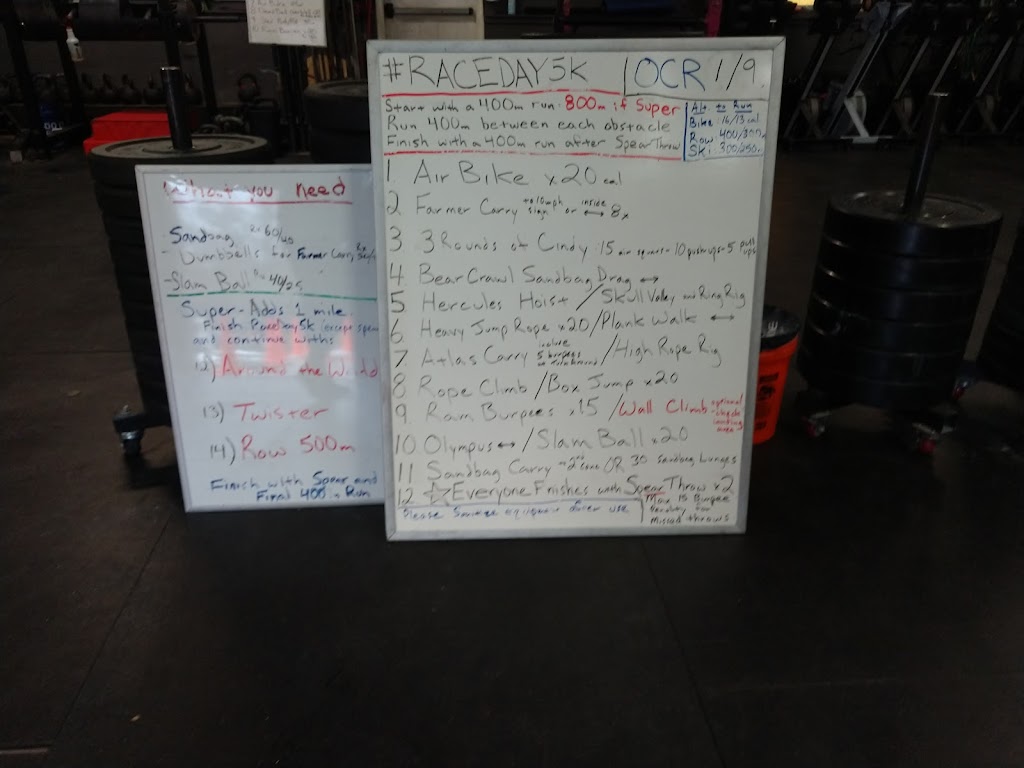 #RACEDAY5K | OCR 1/9
Start with a 400m run. 800m if Super
Run 400m between each obstacle
Finish with a 400m run after Spear Throw
Alt to Run
Bike: 16/13 cal
Row: 400/300m
Ski: 300/250m
1. Air Bike x20 cal
2 Farmer Carry to 10mph sign or inside ↔ 8x
3. 3 Rounds of Cindy 15 air squats - 10 pushups - 5 pull ups
4 Bear Crawl Sandbag Drag ↔
5 Hercules Hoist / Skull Valley and Ring Rig
6 Heavy Jump Rope x20 / Plank Walk ↔
7 Atlas Carry include 5 burpees / High Rope Rig
8 Rope Climb / Box Jump x20
9 Ram Burpees x15 / Wall Climb optional
landing area
10 Olympus ↔ / Slam Ball x20
11 Sandbag Carry 2nd cone OR 30 Sandbag Lunges
12 ☆ Everyone Finishes with Spear Throw x2
Please Sanitize equipment after use
Max 15 Burpee
Penalty for
Missed throws
What you need
Sandbag 60/40
- Dumbbells for Farmer Carry
- Slam Ball 40/25
Super - Adds 1 mile
Finish Raceday5k (except spear
and continue with:
12) Around the World
13) Twister
14) Row 500m
Finish with Spear and
Final 400m Run